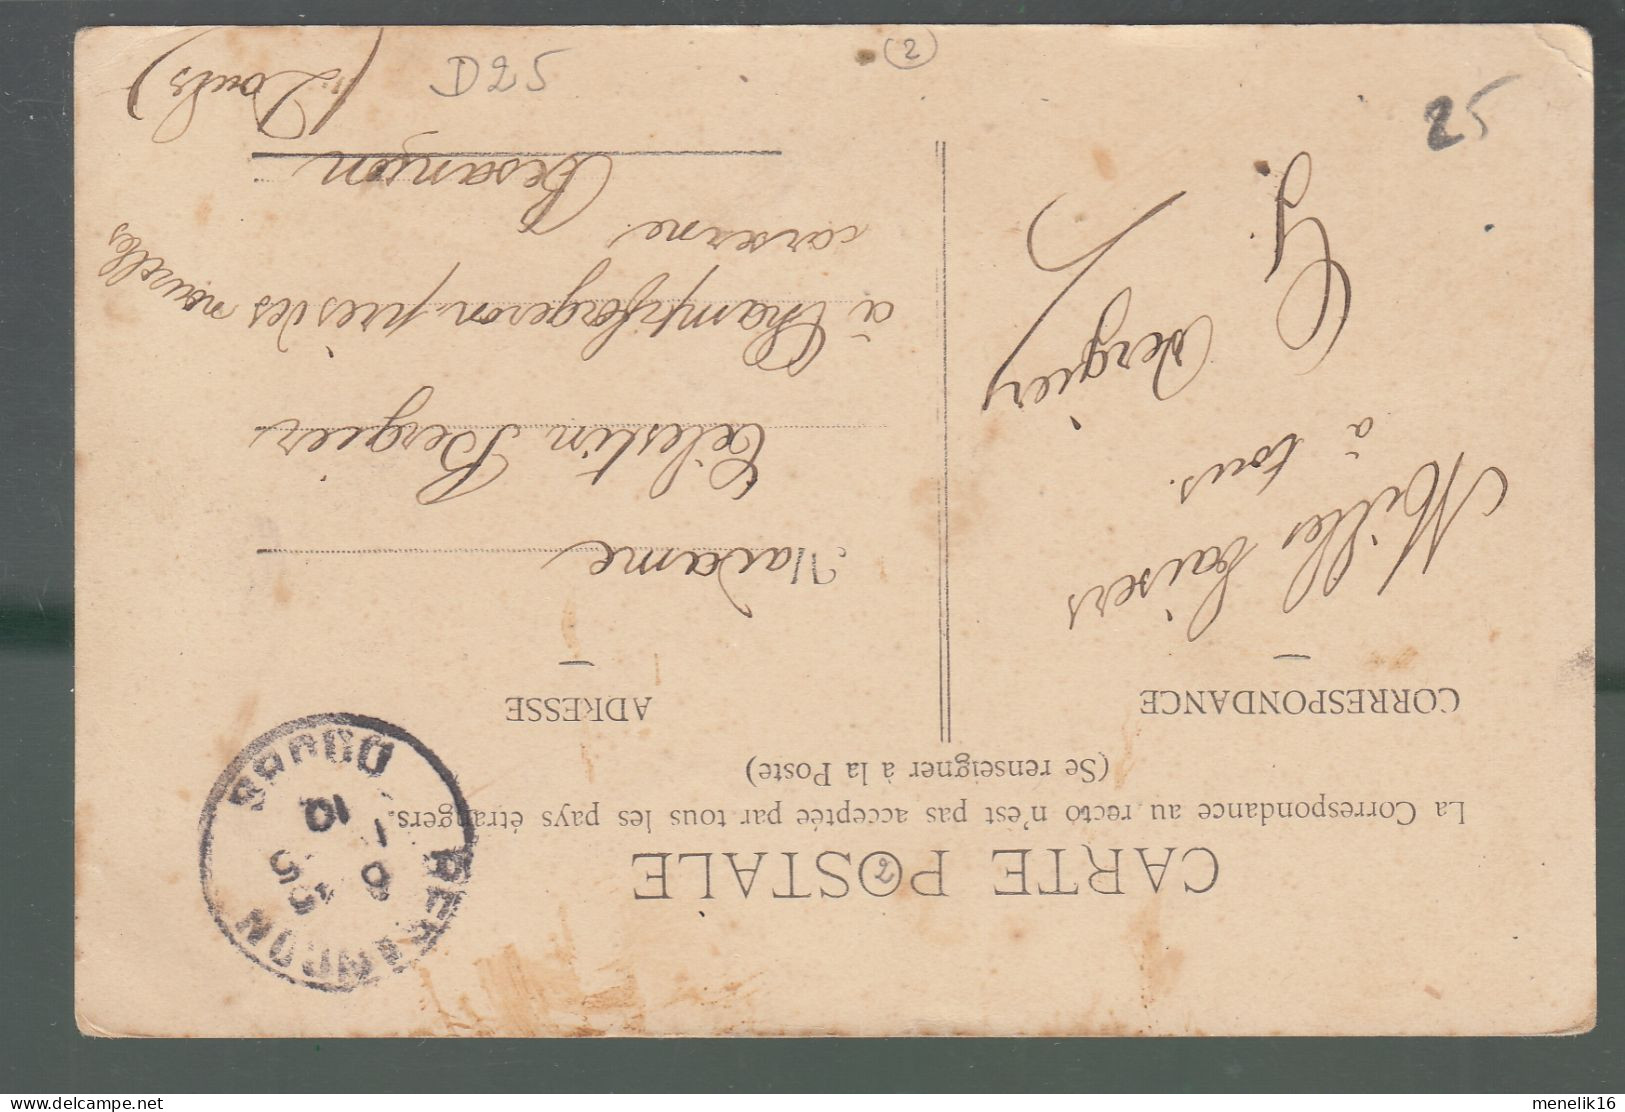 CARTE POSTALE
La Correspondance au recto n'est pas acceptée par tous les pays étrangers.
(Se renseigner à la Poste)
CORRESPONDANCE
ADRESSE
Milles baisers
à tous.
G. Bergier
Madame
Célestin Bergier
à Champforgeron près des nouvelles
caserne
Besançon
(Doubs)
BESANCON
15 5
6 - 1
10
DOUBS
25
D25
2
menelik16